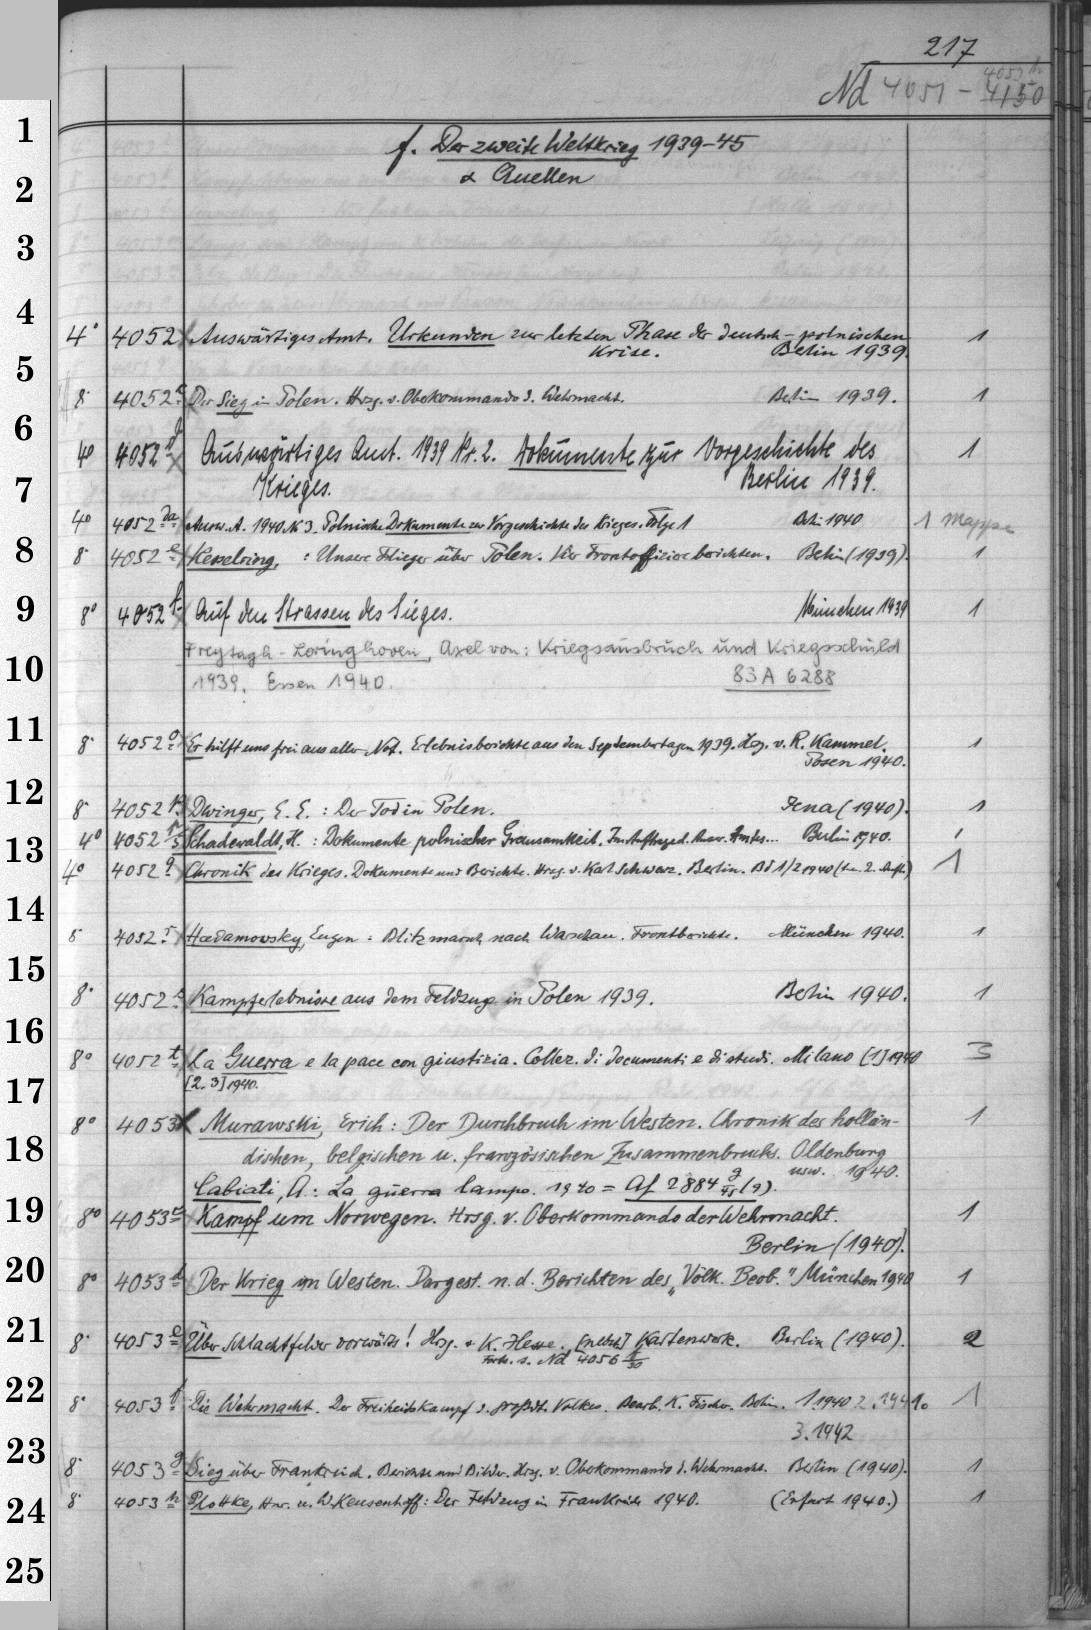 217
Nd 4051 - 4150
4053 h
f. Der zweite Weltkrieg 1939-45
α Quellen
4° 4052 Auswärtiges Amt. Urkunden zur letzten Phase der deutsch-polnischen 1
Krise. Berlin 1939.
8° 4052 c Der Sieg in Polen. Hrsg. v. Oberkommando d. Wehrmacht. Berlin 1939. 1
4° 4052 d Auswärtiges Amt. 1939 Nr. 2. Dokumente zur Vorgeschichte des 1
Krieges. Berlin 1939.
4° 4052 da Ausw. A. 1940. Nr 3. Polnische Dokumente zur Vorgeschichte des Krieges. Folge 1 Bln 1940 1 Mappe
8° 4052 e Kesselring, : Unsere Flieger über Polen. Vier Frontoffiziere berichten. Berlin (1939). 1
8° 4052 f Auf den Strassen des Sieges. München 1939 1
Freytagh-Loringhoven, Axel von: Kriegsausbruch und Kriegsschuld
1939. Essen 1940. 83 A 6288
8° 4052 o Er hilft uns frei aus aller Not. Erlebnisberichte aus den Septembertagen 1939. Hrsg. v. R. Kammel. 1
Posen 1940.
8° 4052 p Dwinger, E. E.: Der Tod in Polen. Jena (1940). 1
4° 4052 Schadewaldt, H.: Dokumente polnischer Grausamkeit. Im Auftrage d. Ausw. Amtes... Berlin 1940. 1
4° 4052 q Chronik des Krieges. Dokumente und Berichte. Hrsg. v. Karl Schwarz. Berlin. Bd 1/2 1940 1
8° 4052 r Hadamowsky, Eugen: Blitzmarsch nach Warschau. Frontberichte. München 1940. 1
8° 4052 s Kampferlebnisse aus dem Feldzuge in Polen 1939. Berlin 1940. 1
8° 4052 t La Guerra e la pace con giustizia. Collez. di documenti e di studi. Milano [1] 1940 3
[2.3] 1940.
8° 4053 Murawski, Erich: Der Durchbruch im Westen. Chronik des hollän- 1
dischen, belgischen u. französischen Zusammenbruchs. Oldenburg
usw. 1940.
Cabiati, A.: La guerra lampo. 1940 = Af 2884 (9).
8° 4053 Kampf um Norwegen. Hrsg. v. Oberkommando der Wehrmacht. 1
Berlin (1940).
8° 4053 d Der Krieg im Westen. Dargest. n. d. Berichten des „Völk. Beob." München 1940 1
8° 4053 e Über Schlachtfelder vorwärts! Hrsg. v. K. Hesse. [nebst] Kartenwerk. Berlin (1940). 2
Forts. s. Nd 4056
8° 4053 f Die Wehrmacht. Der Freiheitskampf d. großdt. Volkes. Bearb. K. Fischer. Berlin. 1.1940 2.1941. 1
3.1942
8° 4053 g Sieg über Frankreich. Berichte und Bilder. Hrsg. v. Oberkommando d. Wehrmacht. Berlin (1940). 1
8° 4053 h Plottke, Her. u. W. Keusenhoff: Der Feldzug in Frankreich 1940. (Erfurt 1940.) 1
1
2
3
4
5
6
7
8
9
10
11
12
13
14
15
16
17
18
19
20
21
22
23
24
25